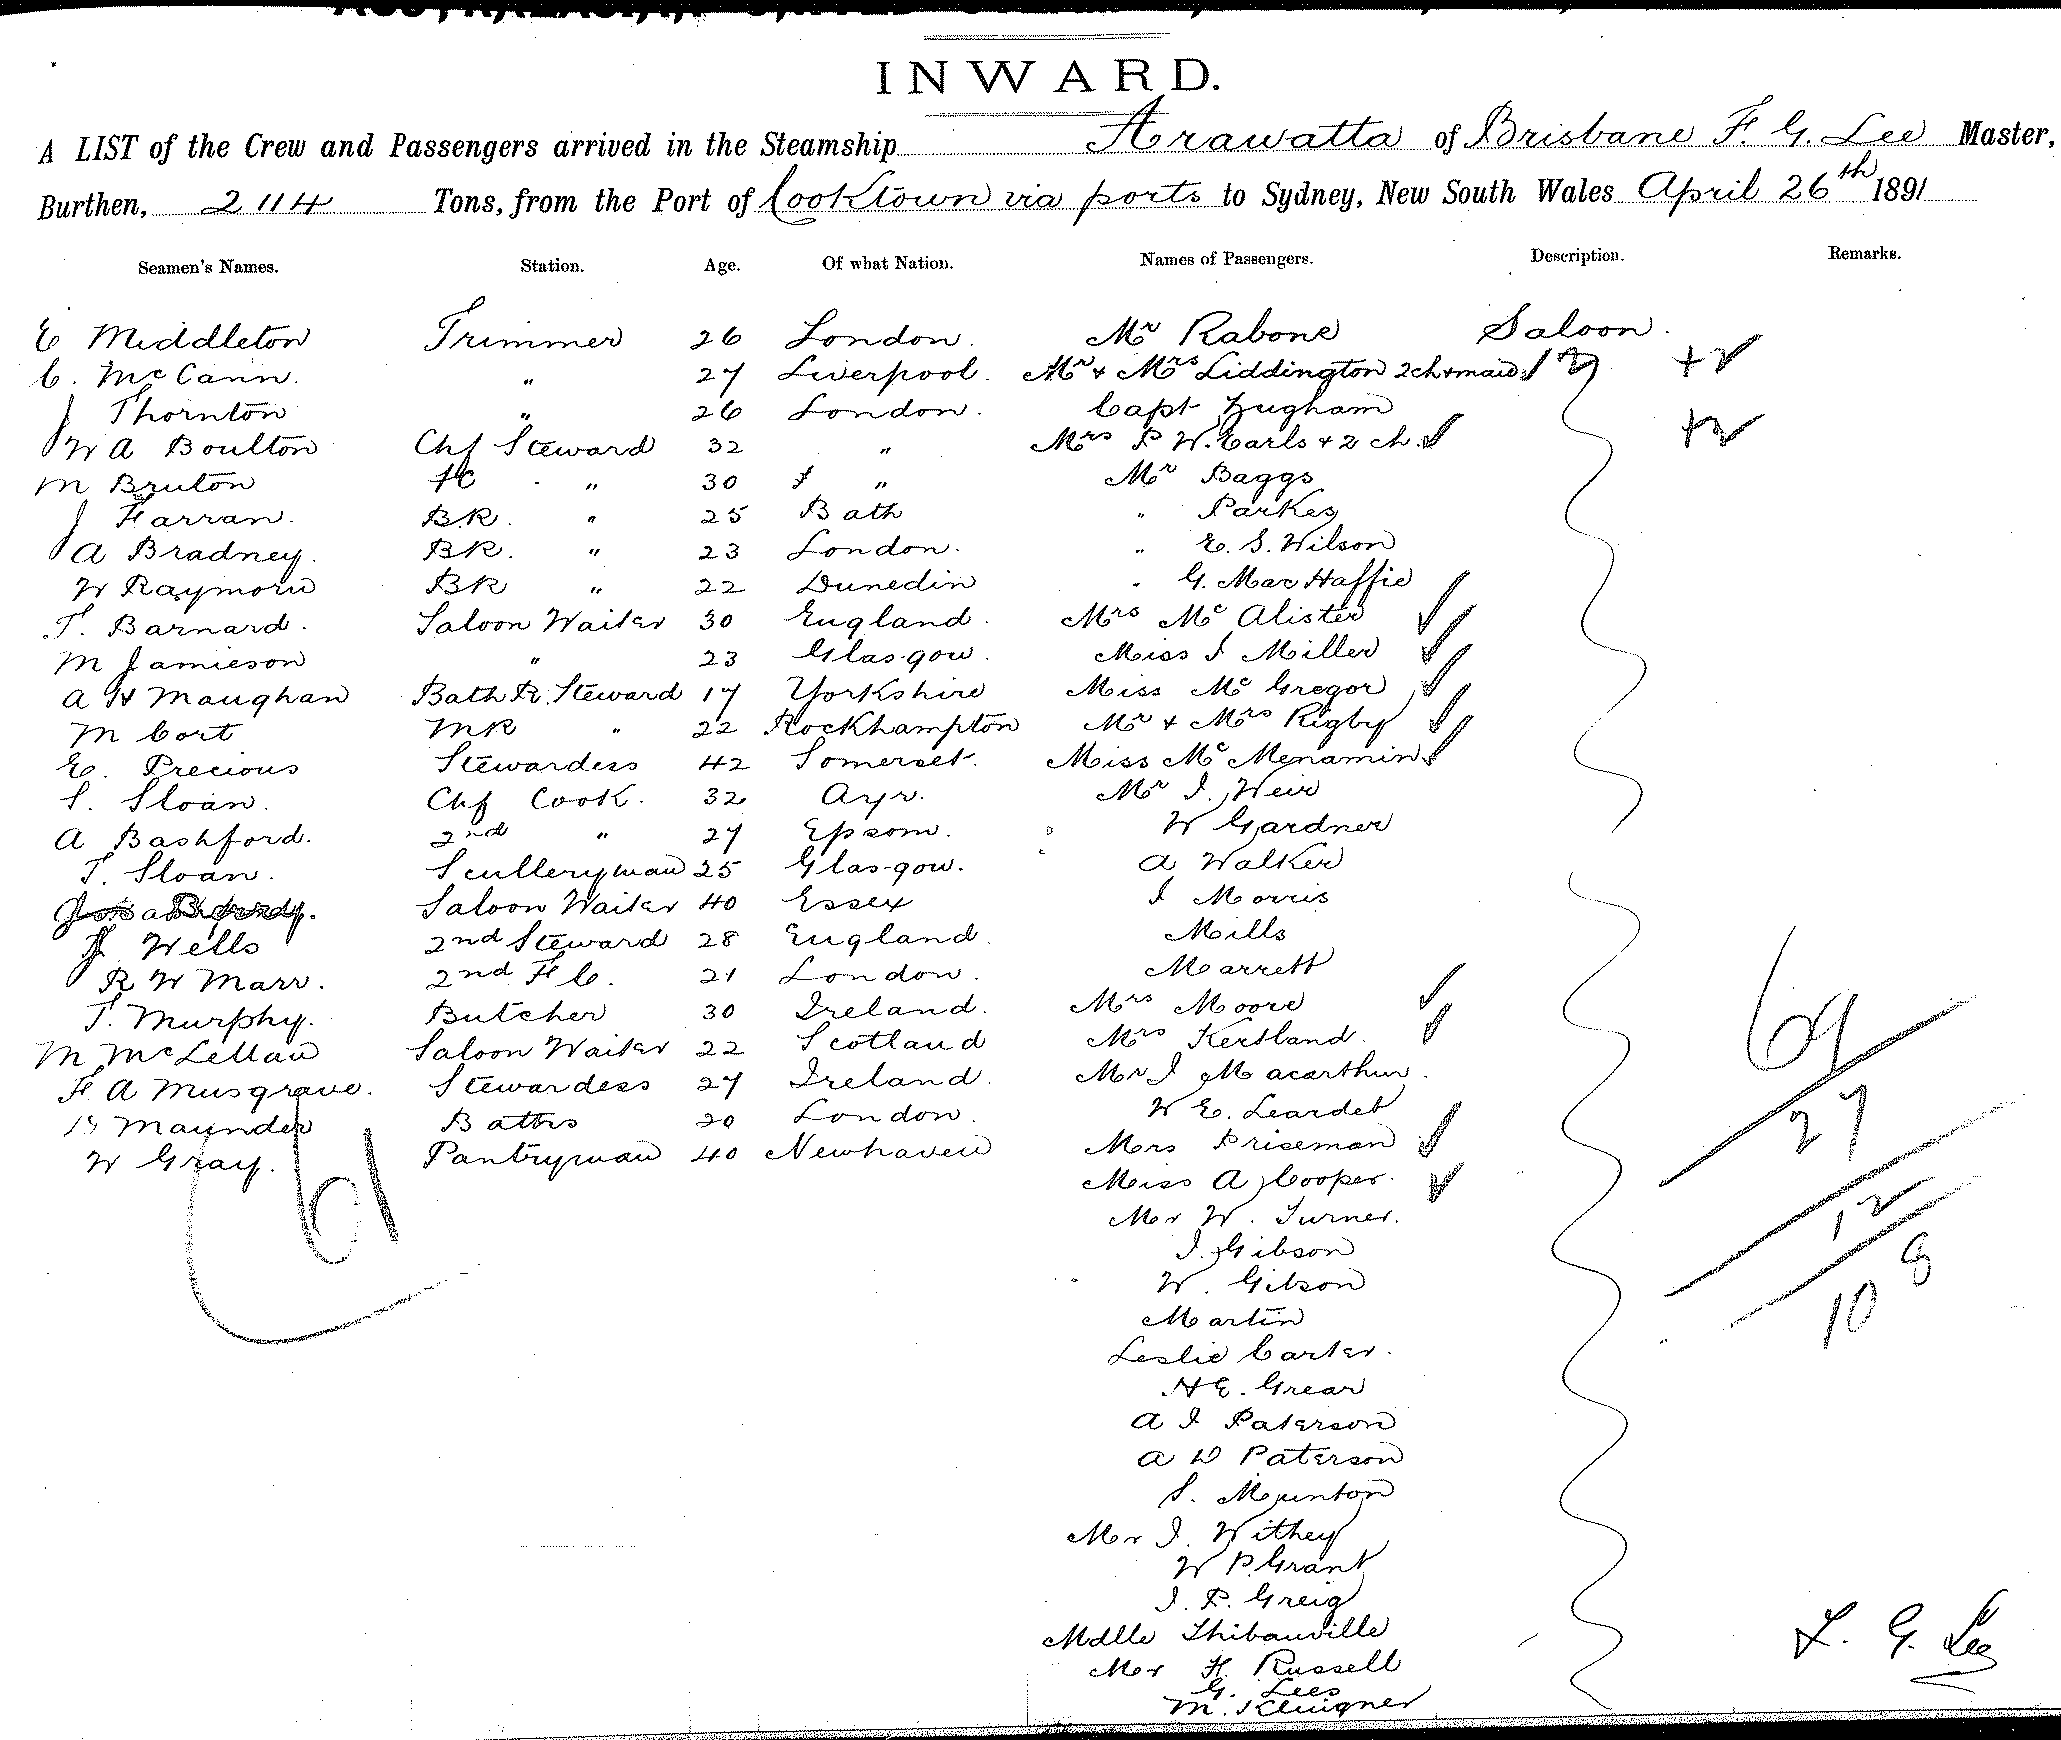 INWARD.
A LIST of the Crew and Passengers arrived in the Steamship Arawatta of Brisbane F. G. Lee Master,
Burthen, 2114 Tons, from the Port of Cooktown via ports to Sydney, New South Wales April 26th 1891
Seamen's Names. Station. Age. Of what Nation. Names of Passengers. Description. Remarks.
E Middleton Trimmer 26 London. Mr Rabone Saloon.
C. McCann. " 27 Liverpool. Mr & Mrs Liddington 2ch & maid
J Thornton " 26 London. Capt
W A Boulton Chf Steward 32 " Mrs P W. Earls + 2 ch.
M Bruton FC " 30 " Mr Baggs
J Farran. BR. " 25 Bath " Parkes
A Bradney. BR. " 23 London. " E. S. Wilson
W Raymond BR " 22 Dunedin " G. MacHaffie
T. Barnard. Saloon Waiter 30 England. Mrs McAlister
M Jamieson " 23 Glasgow. Miss J Miller
A H Maughan Bath R. Steward 17 Yorkshire Miss McGregor
M Cort MR " 22 Rockhampton Mr & Mrs Rigby
E. Precious Stewardess 42 Somerset. Miss McMenamin
S. Sloan. Chf Cook. 32 Ayr. Mr J. Weir
A Bashford. 2nd " 27 Epsom. W Gardner
T. Sloan. Sculleryman 25 Glasgow. A Walker
Saloon Waiter 40 Essex J Morris
J. Wells 2nd Steward 28 England. Mills
R W Marr. 2nd F C. 21 London. Marrett
T. Murphy. Butcher 30 Ireland. Mrs Moore
M McLellan Saloon Waiter 22 Scotland Mrs Kertland.
F. A Musgrave. Stewardess 27 Ireland. Mr J Macarthur.
Maunder Baths 20 London. W E. Leardet
W Gray. Pantryman 40 Newhaven Mrs Priseman
Miss A Cooper.
Mr W. Turner.
J. Gibson
W. Gibson
Martin
Leslie Carter.
H E. Grear
A J Paterson
A W Paterson
S. Munton
Mr J. Withey
W P. Grant
J. P. Greig
Mdlle Thibauville
Mr H. Russell
G. Lees
M.
61
69
27
12
108
F. G. Lee